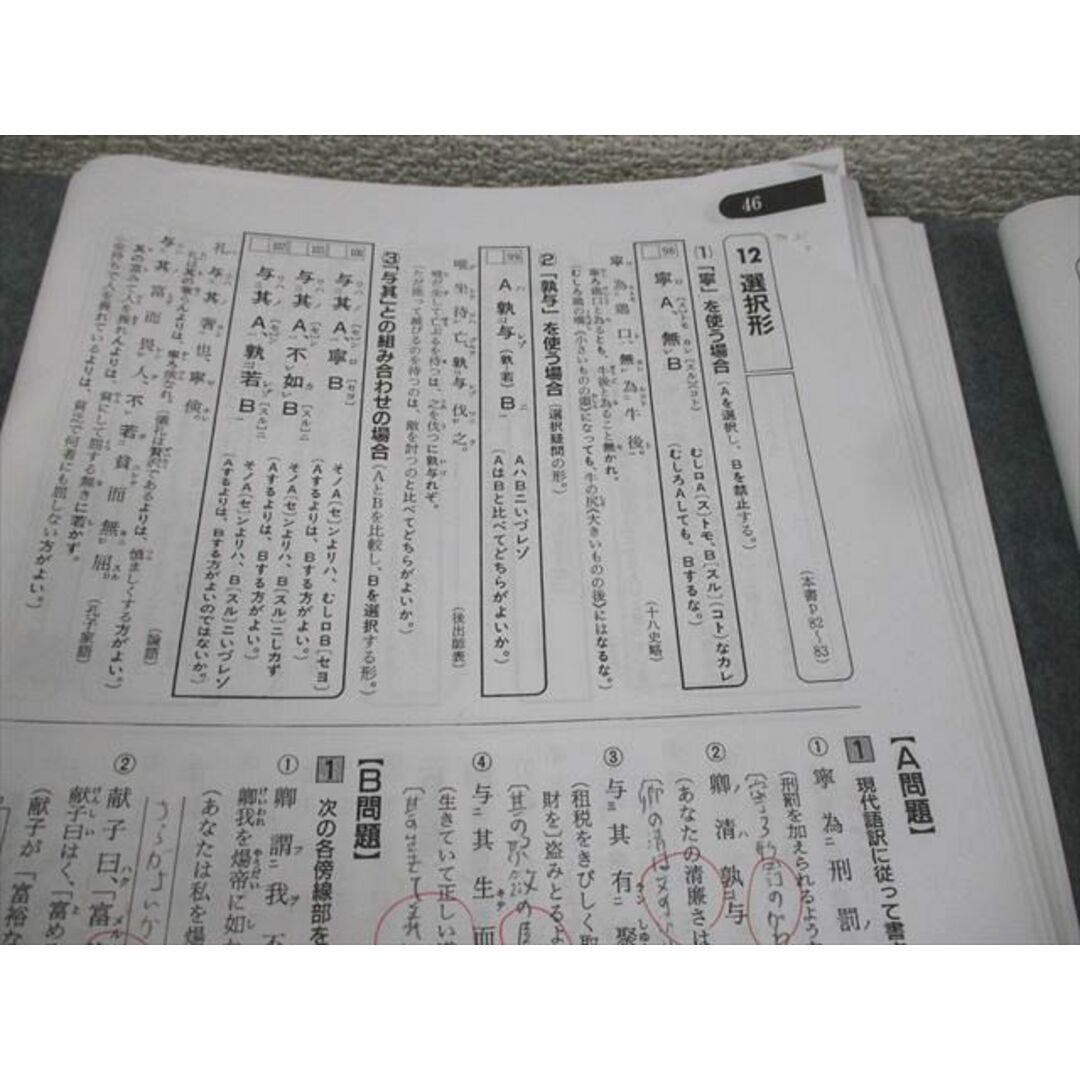 46
12 選択形
（本書p82～83）
(1)「寧」を使う場合（Aを選択し、Bを禁止する。）
98
寧A、無B
むしロA［ス］トモ、B［スル］［コト］なカレ
（むしろAしても、Bするな。）
寧為鶏口、無為牛後。
寧ろ鶏口と為るとも、牛後と為ること無かれ。
（むしろ鶏の嘴（小さいものの頭）になっても、牛の尻（大きいものの後）にはなるな。）
（十八史略）
②「孰与」を使う場合（選択疑問の形。）
99
A孰与（孰若）B
AハBニいづレゾ
（AはBと比べてどちらがよいか。）
唯坐待亡、孰与伐之。
唯だ坐して亡ぶるを待つは、之を伐つに孰与れぞ。
（ただ座って滅びるのを待つのは、敵を討つのと比べてどちらがよいか。）
（後出師表）
③「与其」との組み合わせの場合（AとBを比較し、Bを選択する形。）
100
与其A、寧B
そノA［セ］ンよリハ、むしロB［セヨ］
（Aするよりは、Bする方がよい。）
101
与其A、不如B
そノA［セ］ンよリハ、B［スル］ニしカず
（Aするよりは、Bする方がよい。）
102
与其A、孰若B
そノA［セ］ンよリハ、B［スル］ニいづレゾ
（Aするよりは、Bする方がよいのではないか。）
礼与其奢也、寧倹。
礼は其の奢らんよりは、寧ろ倹なれ。
（儀礼は贅沢であるよりは、慎ましくする方がよい。）
（論語）
与其富而畏人、不若貧而無屈。
其の富みて人を畏れんよりは、貧にして屈する無きに若かず。
（金持ちで人を畏れているよりは、貧乏で何者にも屈しない方がよい。）
（孔子家語）
【A問題】
1 現代語訳に従って書
① 寧為刑罰
（刑罰を加えられるよう
② 卿清孰与
（あなたの清廉さは
③ 与其有聚
（租税をきびしく取
財を）盗みとるよ
④ 与其生而
（生きていて正しい
【B問題】
1 次の各傍線部を
① 卿謂我不
卿我を煬帝に如か
（あなたは私を煬
② 献子曰、「富
献子曰はく、「富め
（献子が「富裕な